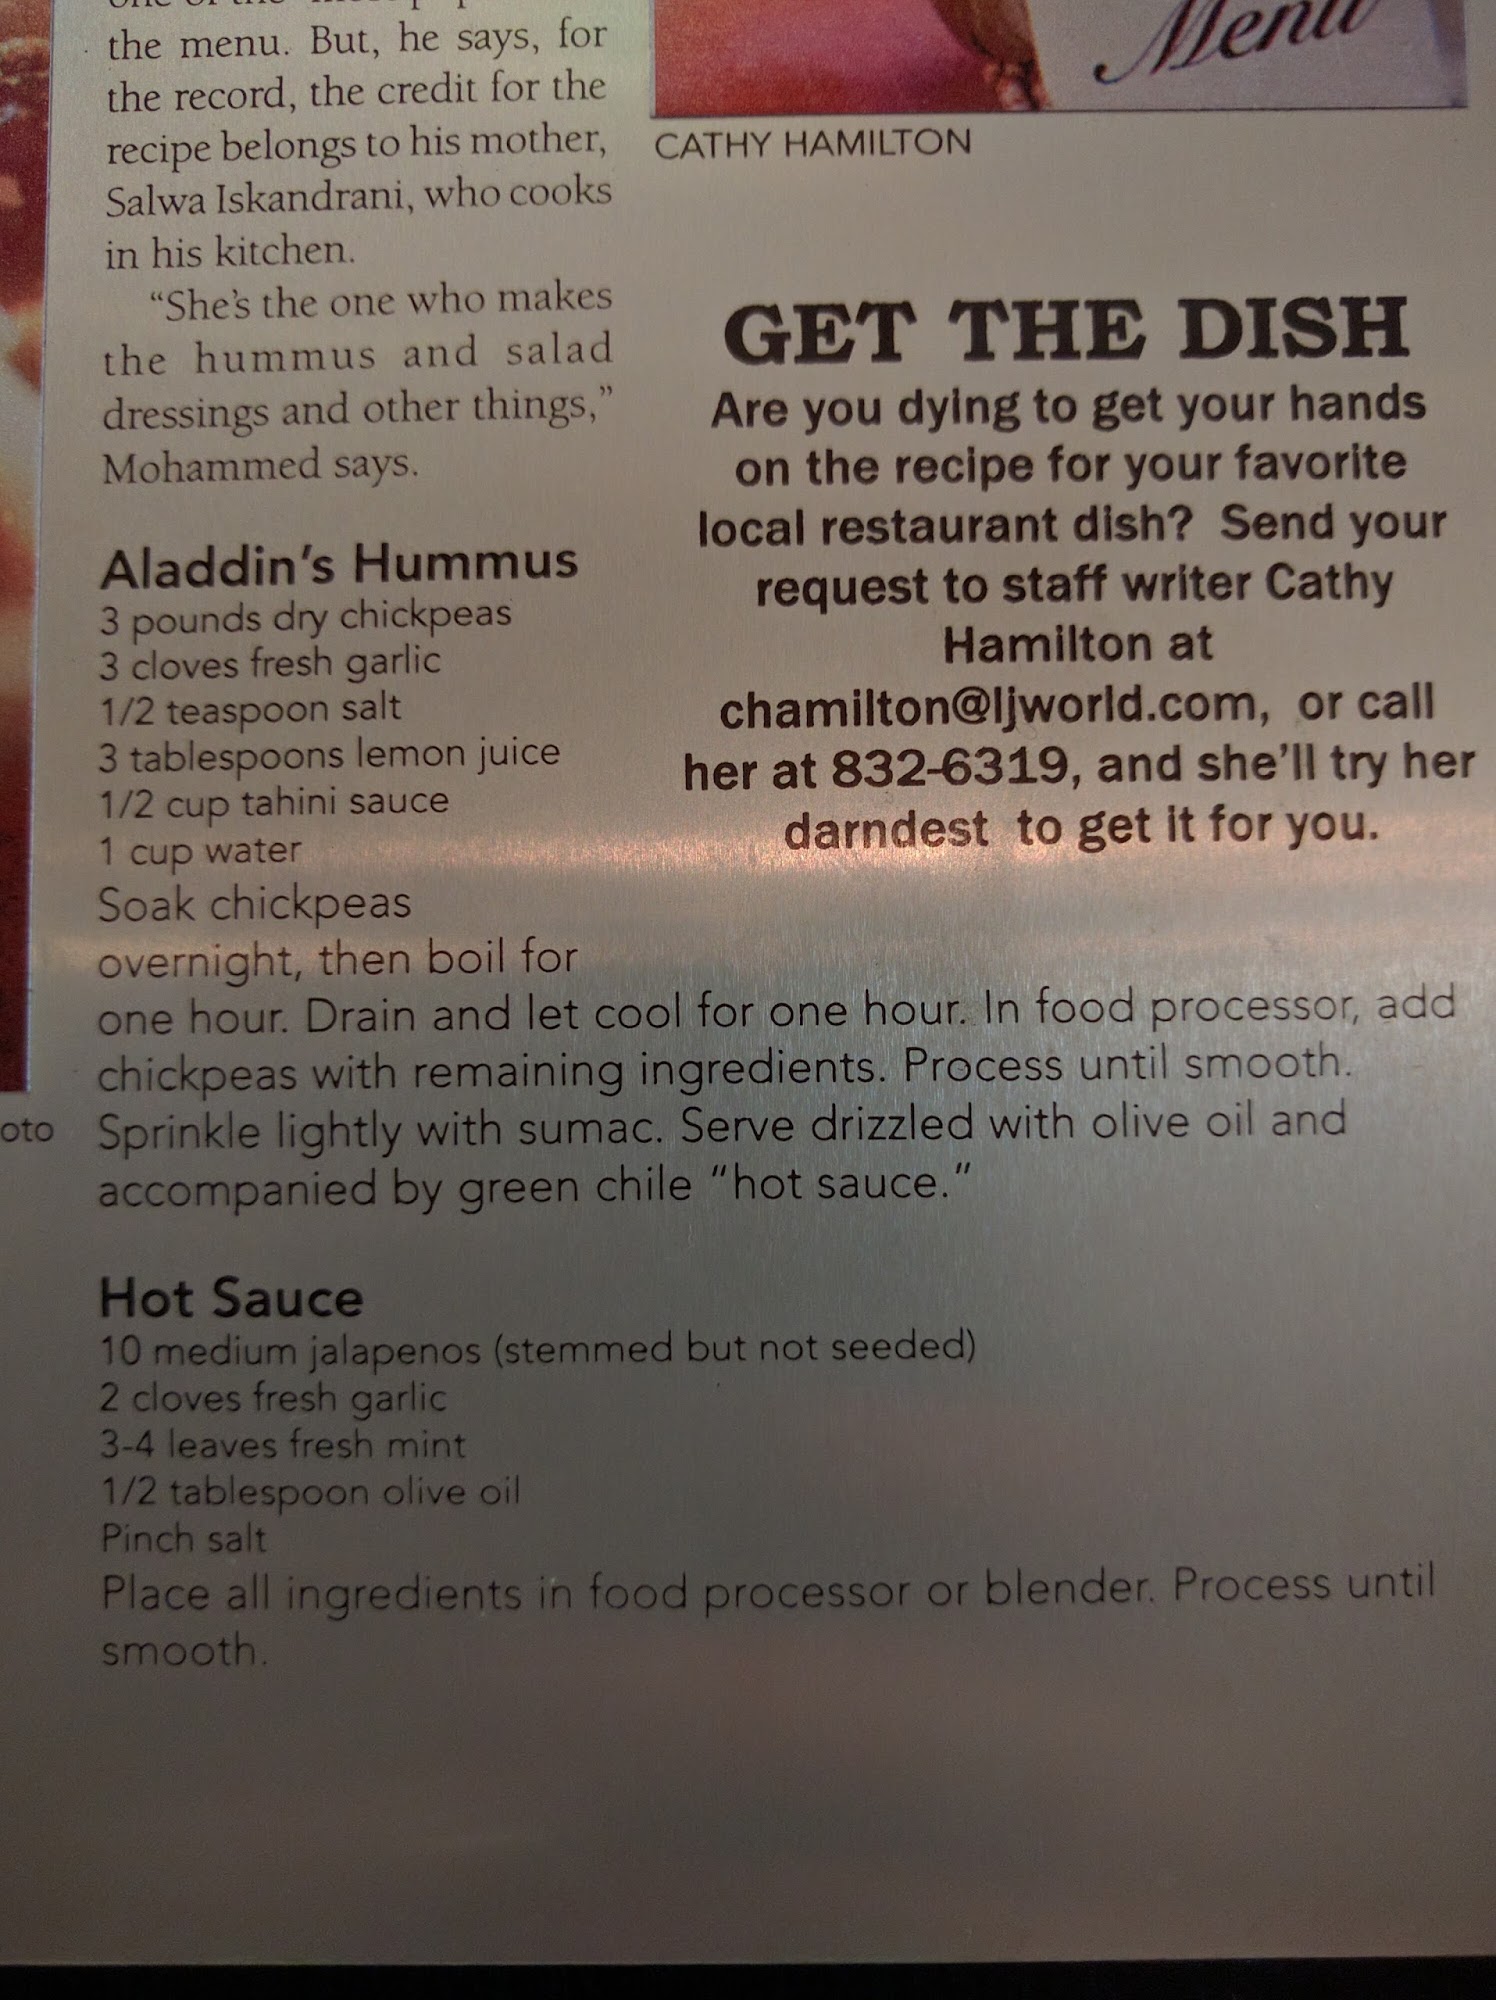 the menu. But, he says, for
the record, the credit for the
recipe belongs to his mother,
Salwa Iskandrani, who cooks
in his kitchen.
“She’s the one who makes
the hummus and salad
dressings and other things,”
Mohammed says.
Aladdin’s Hummus
3 pounds dry chickpeas
3 cloves fresh garlic
1/2 teaspoon salt
3 tablespoons lemon juice
1/2 cup tahini sauce
1 cup water
Soak chickpeas
overnight, then boil for
one hour. Drain and let cool for one hour. In food processor, add
chickpeas with remaining ingredients. Process until smooth.
Sprinkle lightly with sumac. Serve drizzled with olive oil and
accompanied by green chile “hot sauce.”
Hot Sauce
10 medium jalapenos (stemmed but not seeded)
2 cloves fresh garlic
3-4 leaves fresh mint
1/2 tablespoon olive oil
Pinch salt
Place all ingredients in food processor or blender. Process until
smooth.
Menu
CATHY HAMILTON
GET THE DISH
Are you dying to get your hands
on the recipe for your favorite
local restaurant dish? Send your
request to staff writer Cathy
Hamilton at
chamilton@ljworld.com, or call
her at 832-6319, and she’ll try her
darndest to get it for you.
oto